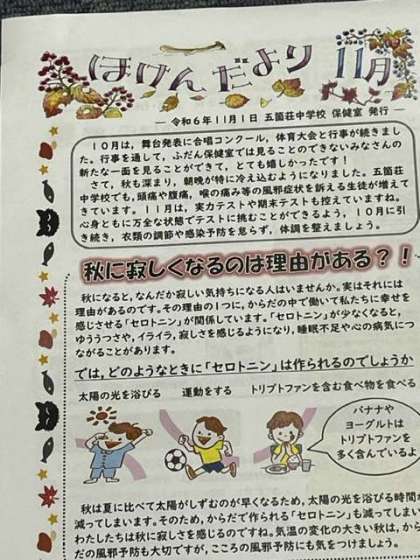 ほけんだより 11月
― 令和6年11月1日 五箇荘中学校 保健室 発行 ―
10月は，舞台発表に合唱コンクール，体育大会と行事が続きまし
た。行事を通して，ふだん保健室では見ることのできないみなさんの
新たな一面を見ることができて，とても嬉しかったです！
さて，秋も深まり，朝晩が特に冷え込むようになりました。五箇荘
中学校でも，頭痛や腹痛，喉の痛み等の風邪症状を訴える生徒が増えて
きています。11月は，実力テストや期末テストも控えていますね。
心身ともに万全な状態でテストに挑むことができるよう，10月に引
き続き，衣類の調節や感染予防を怠らず，体調を整えましょう。
秋に寂しくなるのは理由がある？！
秋になると，なんだか寂しい気持ちになる人はいませんか。実はそれには
理由があるのです。その理由の1つに，からだの中で働いて私たちに幸せを
感じさせる「セロトニン」が関係しています。「セロトニン」が少なくなると，
ゆううつさや，イライラ，寂しさを感じるようになり，睡眠不足や心の病気につ
ながることがあります。
では，どのようなときに「セロトニン」は作られるのでしょうか
太陽の光を浴びる 運動をする トリプトファンを含む食べ物を食べる
バナナや
ヨーグルトは
トリプトファンを
多く含んでいるよ
秋は夏に比べて太陽がしずむのが早くなるため，太陽の光を浴びる時間が
減ってしまいます。そのため，からだで作られる「セロトニン」も減ってしまい，
わたしたちは秋に寂しさを感じるのですね。気温の変化の大きい秋は，から
だの風邪予防も大切ですが，こころの風邪予防にも気をつけましょう。